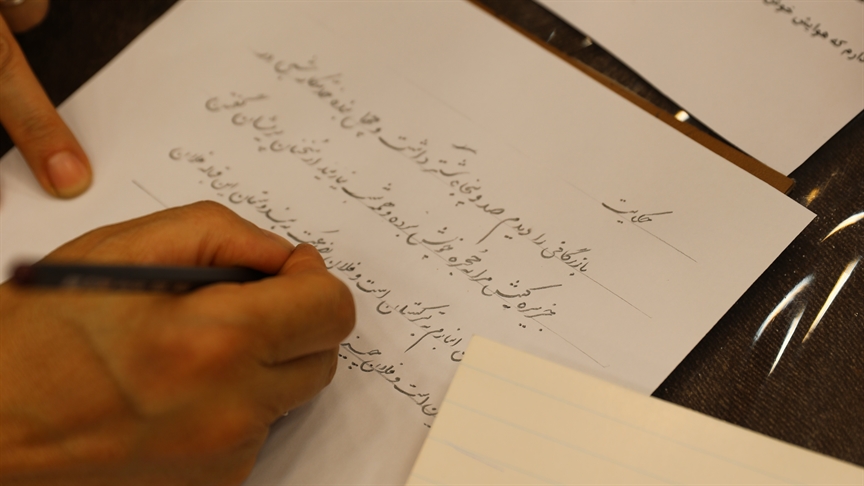 حکایت
بازرگانی را دیدم صد و پنجاه شتر داشت و چهل بنده خدمتکار شبی در
جزیره کیش مرا به حجره خویش برده و شب نیارمید از سخنان پریشان گفتن
انبازم به ترکستان است و فلان بضاعت به هندوستان این قباله فلان
است و فلان چیز
که هوایش خوش